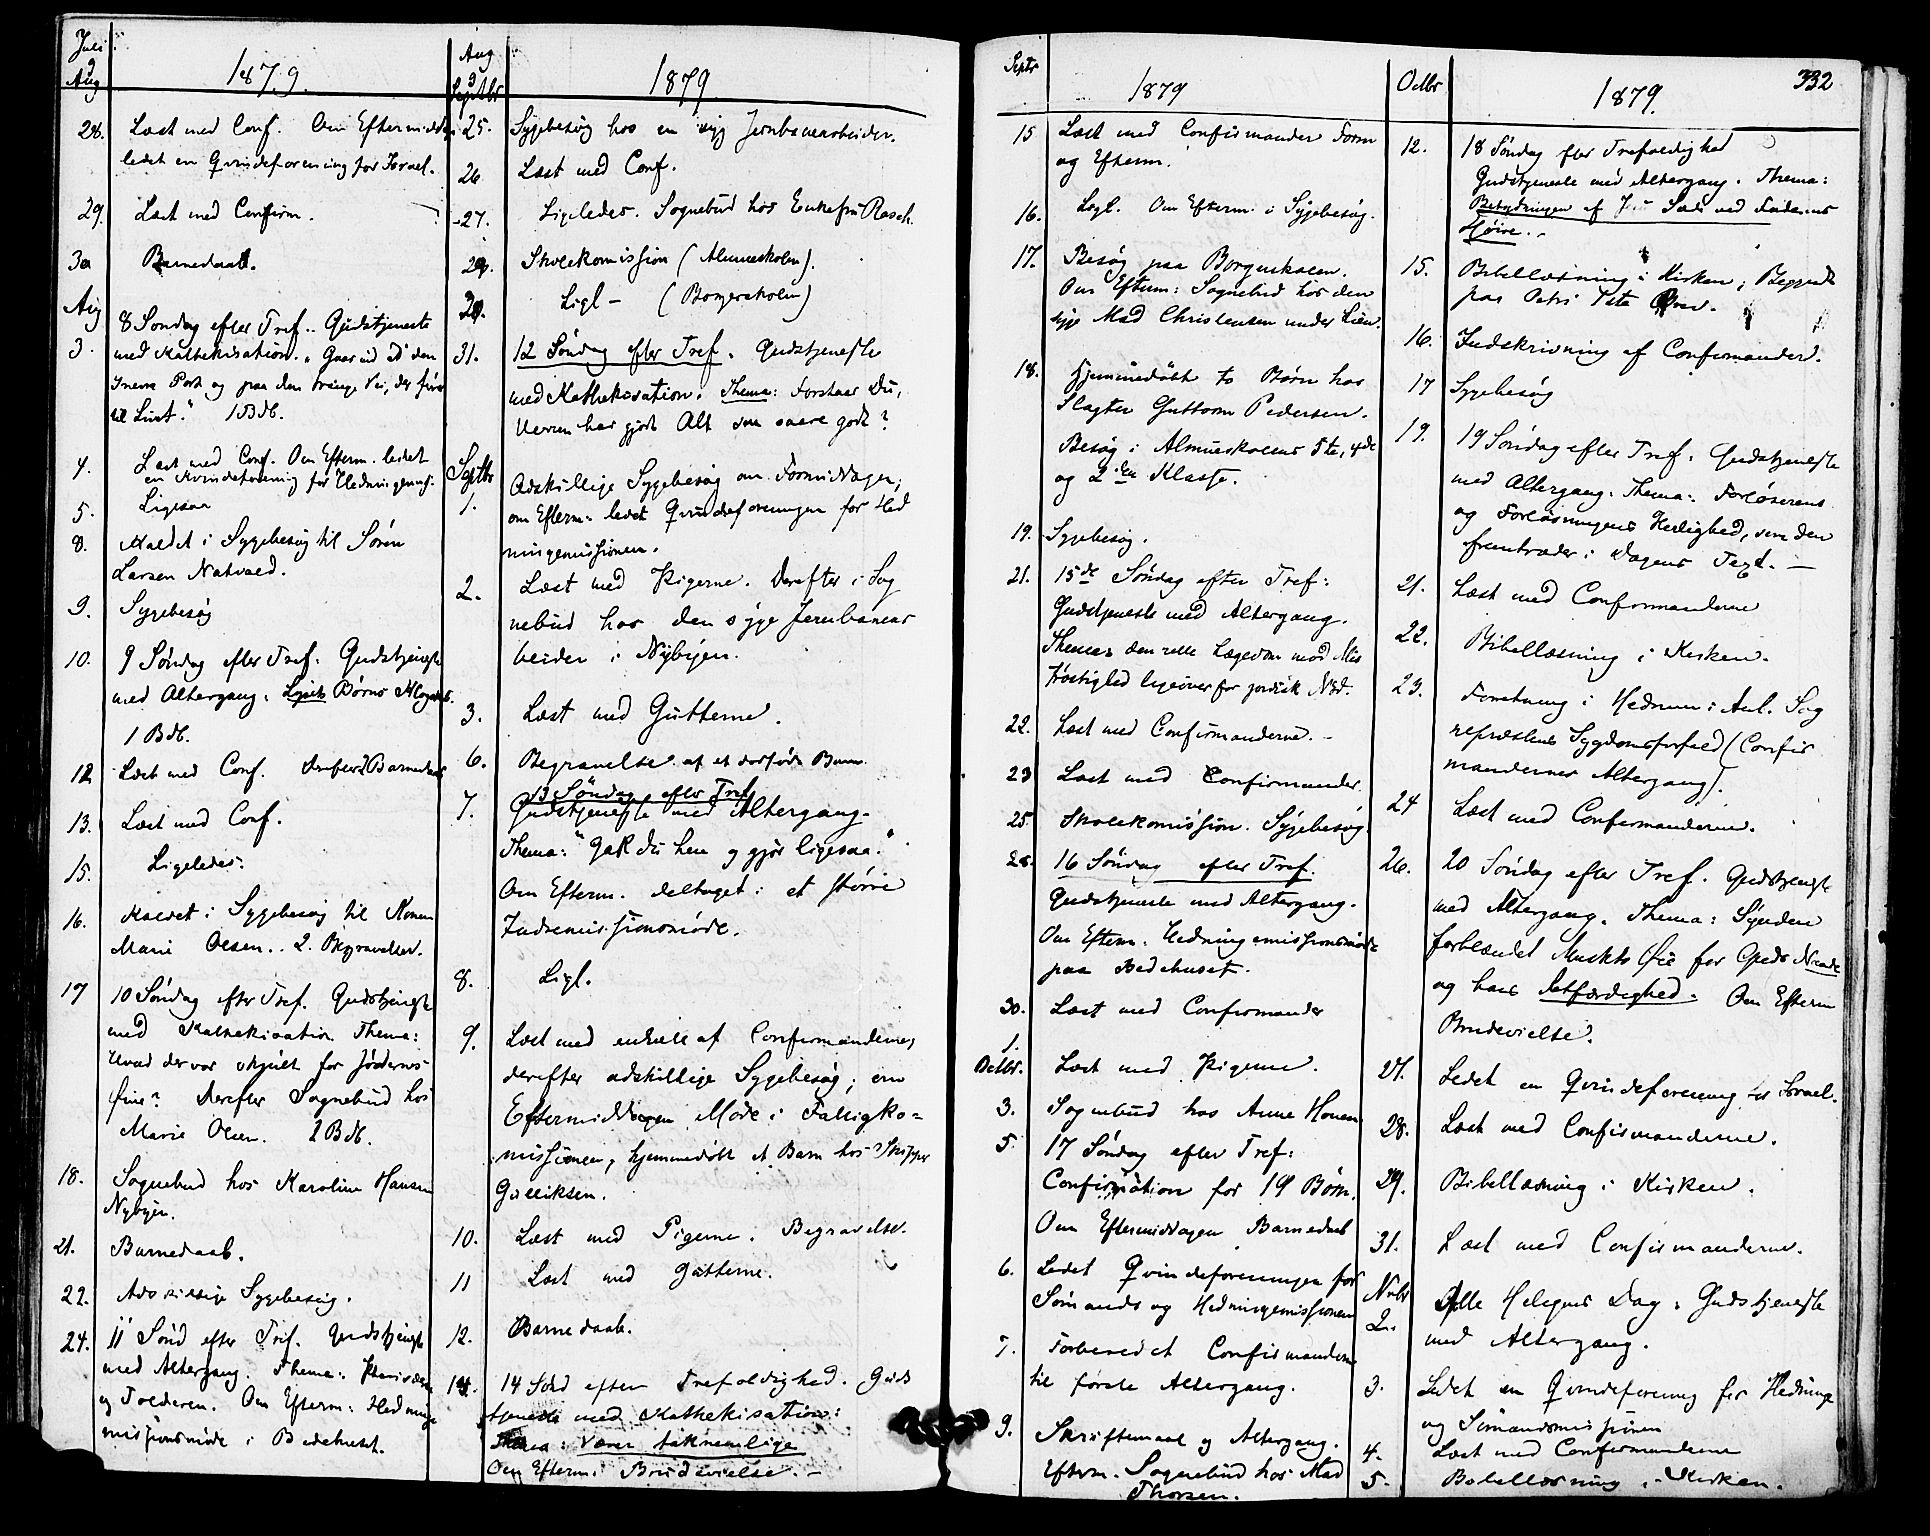 Juli
Aug
1879.
28. Læst med Conf. Om Eftermiddagen
ledet en Qvindeforening for Israel.
29. Læst med Confirm.
30 Barnedaab.
Aug
3. 8 Søndag efter Tref. Gudstjeneste
med Kathekisation. "Gaar ind ad den
snevre Port og paa den trange Vei, der fører
til Livet." 1 Bdb.
4. Læst med Conf. Om Efterm. ledet
en Kvindeforening for Hedningemis.
5. Ligesaa
8. Kaldet i Sygebesøg til Søren
Larsen Natvold.
9. Sygebesøg
10. 9 Søndag efter Tref. Gudstjeneste
med Altergang. Lysets Børns Klogskab.
1 Bdb.
12 Læst med Conf. derefter Barnedaab
13. Læst med Conf.
15. Ligeledes.
16. Kaldet i Sygebesøg til Konen
Marie Olsen. 2 Begravelser.
17 10 Søndag efter Tref. Gudstjeneste
med Kathekisation Thema:
Hvad der var skjult for Jødernes
Øine? Derefter Sognebud hos
Marie Olsen. 2 Bdb.
18. Sognebud hos Karoline Hansen
Nybyen.
21. Barnedaab.
22. Adskillige Sygebesøg.
24. 11 Sønd efter Tref. Gudstjeneste
med Altergang. Thema: Phariseeren
og Tolderen. Om Efterm: Hedninge
missionsmøde i Bedehuset.
Aug
Septbr
1879
25. Sygebesøg hos en syg Jernbanearbeider.
26 Læst med Conf.
27. Ligeledes. Sognebud hos Enkefru Rasch.
29. Skolekomission (Almueskolen).
30. Ligl - (Borgerskolen)
31. 12 Søndag efter Tref. Gudstjeneste
med Kathekisation. Thema: Forstaar Du,
Herren har gjort Alt saare godt?
Septbr
1. Adskillige Sygebesøg om Formiddagen,
om Efterm: ledet Qvindeforeningen for Hed
ningemissionen.
2. Læst med Pigerne. Derefter i Sog
nebud hos den syge Jernbanear
beider i Nybyen.
3. Læst med Gutterne.
6. Begravelse af et dødfødt Barn
13 Søndag efter Tref
7. Gudstjeneste med Altergang.
Thema: "Gak du hen og gjør ligesaa."
Om Efterm. deltaget i et større
Indremissionsmøde.
8. Ligl.
9. Læst med enkelte af Confirmanderne,
derefter adskillige Sygebesøg; om
Eftermiddagen Møde i Fattigko=
missionen, hjemmedøbt et Barn hos Skipper
Gulliksen.
10. Læst med Pigerne. Begravelse.
11 Læst med Gutterne.
12. Barnedaab.
14. 14 Sønd efter Trefoldighed. Guds
tjeneste med Kathekisation:
Thema: Værer taknemlige
Om Efterm: Brudevielse. -
Septr
1879
15 Læst med Confirmander Form
og Efterm.
16. Ligl. Om Efterm. i Sygebesøg.
17. Besøg paa Borgerskolen.
Om Efterm: Sognebud hos den
syge Mad Christensen under Lien.
18. Hjemmedøbt to Børn hos
Slagter Guttorm Pedersen.
Besøg i Almueskolens 5te, 4de
og 2den Klasse.
19. Sygebesøg.
21. 15de Søndag efter Tref:
Gudstjeneste med Altergang.
Thema: den rette Lægedom mod Mis
trøstighed ligeoverfor jordisk Nød.
22. Læst med Confirmanderne. -
23 Læst med Confirmander.
25. Skolekomission. Sygebesøg.
28. 16 Søndag efter Tref.
Gudstjeneste med Altergang.
Om Efterm. Hedningemissionsmøde
paa Bedehuset.
30. Læst med Confirmander
1.
Octbr. Læst med Pigerne.
3. Sognebud hos Anne Honen
5 17 Søndag efter Tref:
Confirmation for 19 Børn.
Om Eftermiddagen Barnedaab
6. Ledet Qvindeforeningen for
Sømands og Hedningemissionen
7. Forberedet Confirmanderne
til første Altergang.
9. Skriftemaal og Altergang.
Efterm. Sognebud hos Mad
Thorsen.
Octbr
1879.
332
12. 18 Søndag efter Trefoldighed
Gudstjeneste med Altergang. Thema:
Betydningen af Jesu Sæde ved Faderens
Høire. -
15. Bibellæsning i Kirken; Begyndt
paa Petri 1ste Brev.
16. Indskrivning af Confirmander.
17 Sygebesøg
19. 19 Søndag efter Tref. Gudstjeneste
med Altergang. Thema: Forløserens
og Forløsningens Herlighed, som den
fremtræder i Dagens Text. -
21. Læst med Confirmanderne
22. Bibellæsning i Kirken.
23. Forretning i Hedrum i Anl. Sog
nepræstens Sygdomsforfald (Confir
mandernes Altergang).
24 Læst med Confirmanderne.
26. 20 Søndag efter Tref. Gudstjeneste
med Altergang. Thema: Synden
forblændet Menskts Øie for Guds Naade
og hans Retfærdighed. Om Efterm
Brudevielse.
27. Ledet en Qvindeforening for Israel.
28. Læst med Confirmanderne.
29. Bibellæsning i Kirken.
31. Læst med Confirmanderne.
Nvbr
2. Alle Helgens Dag. Gudstjeneste
med Altergang.
3. Ledet en Qvindeforening for Hedninge
og Sømandsmissionen
4. Læst med Confirmanderne
5. Bibellæsning i Kirken.